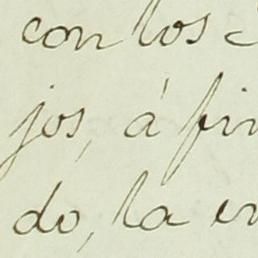 con los
jos, á fin
do, la en